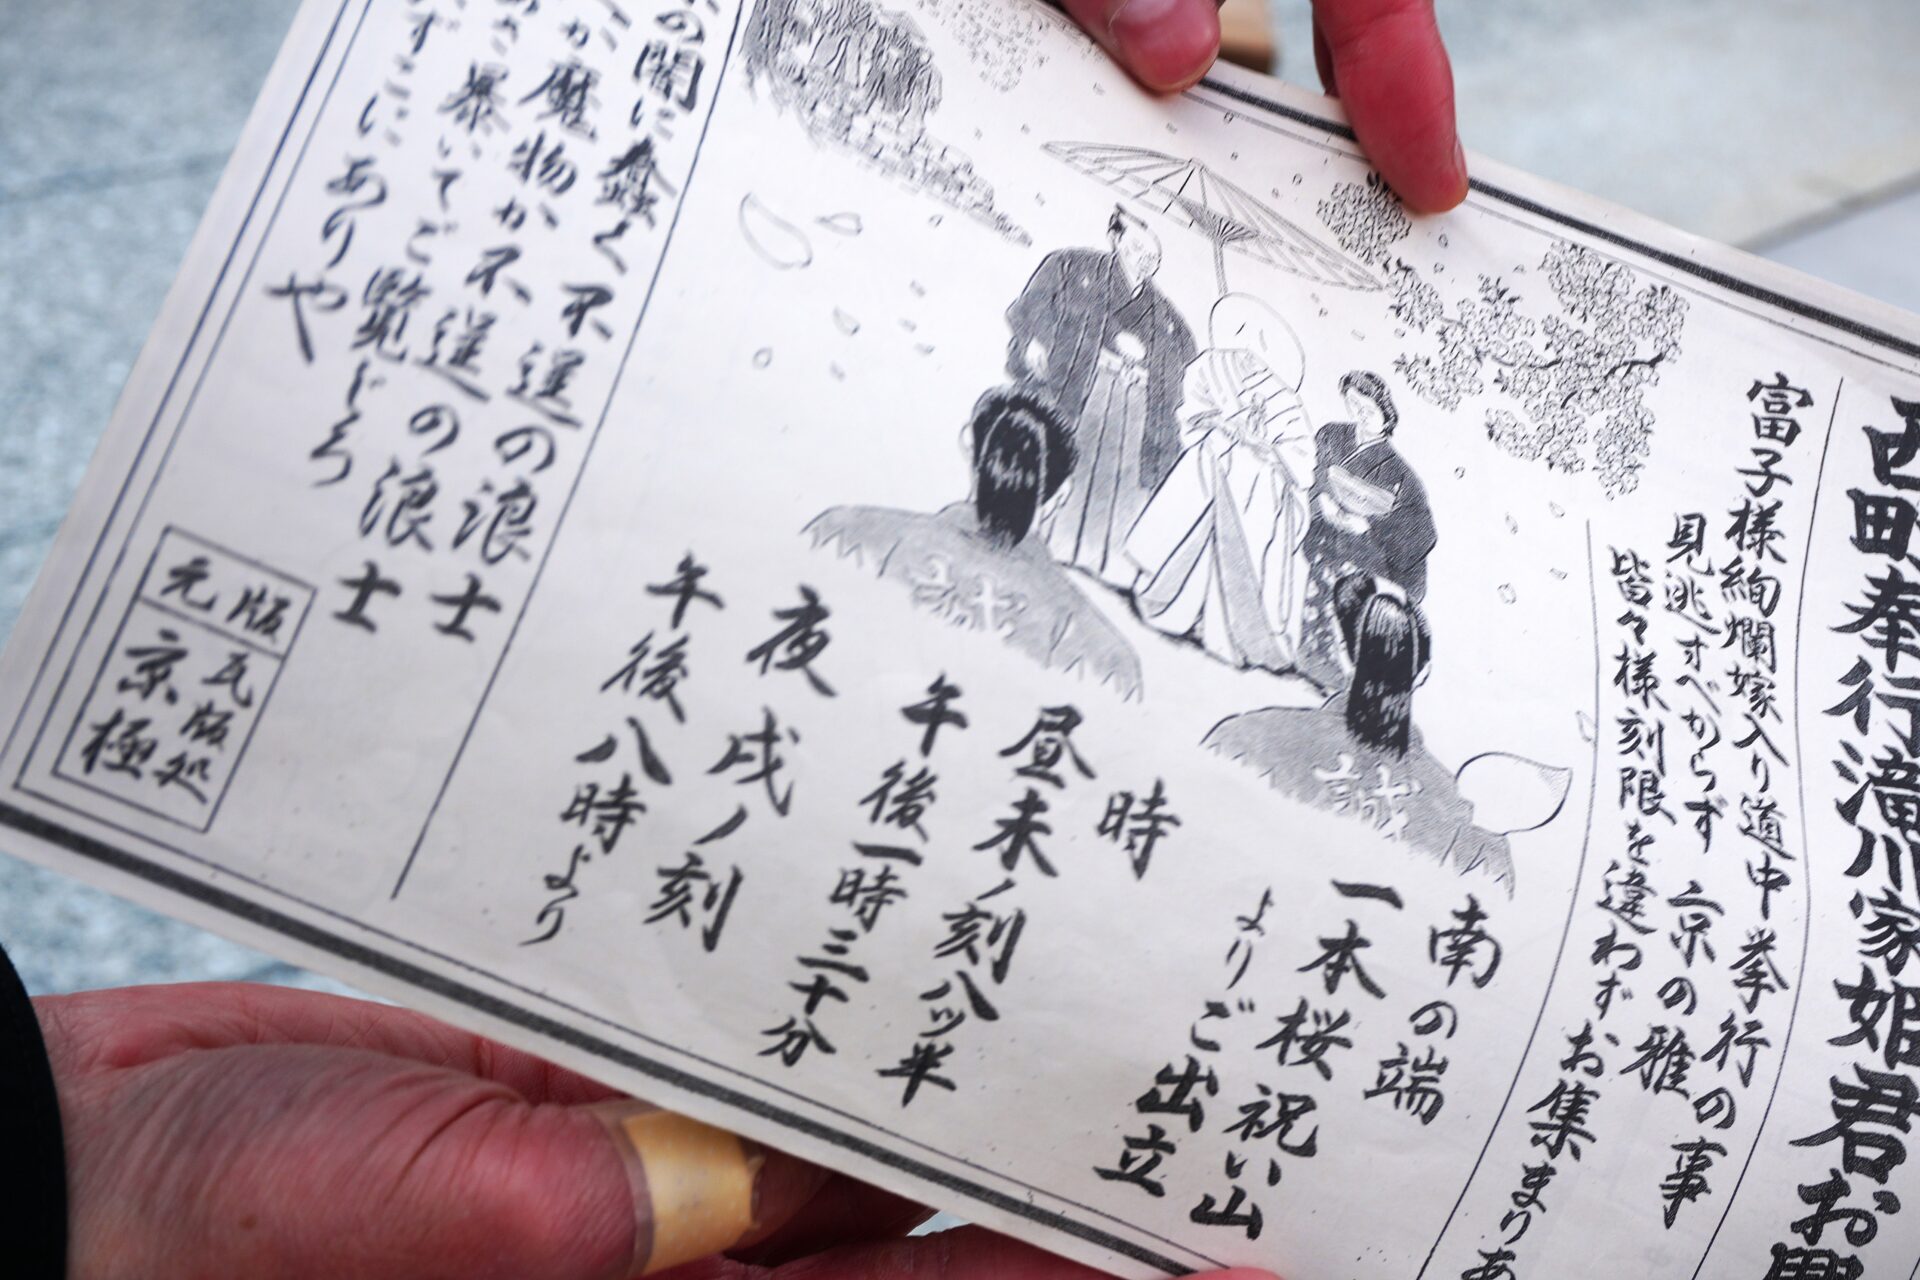 西町奉行滝川家姫君お
富子様絢爛嫁入り道中挙行の事
見逃すべからず 京の雅
皆々様刻限を違わずお集まりあ
南の端
一本桜祝い山
よりご出立
時
昼未ノ刻八ツ半
午後一時三十分
夜戌ノ刻
午後八時より
の闇に蠢く不逞の浪士
か魔物か不逞の浪士
暴いてご覧じろ
ずこにありや
元版
瓦版処
京極